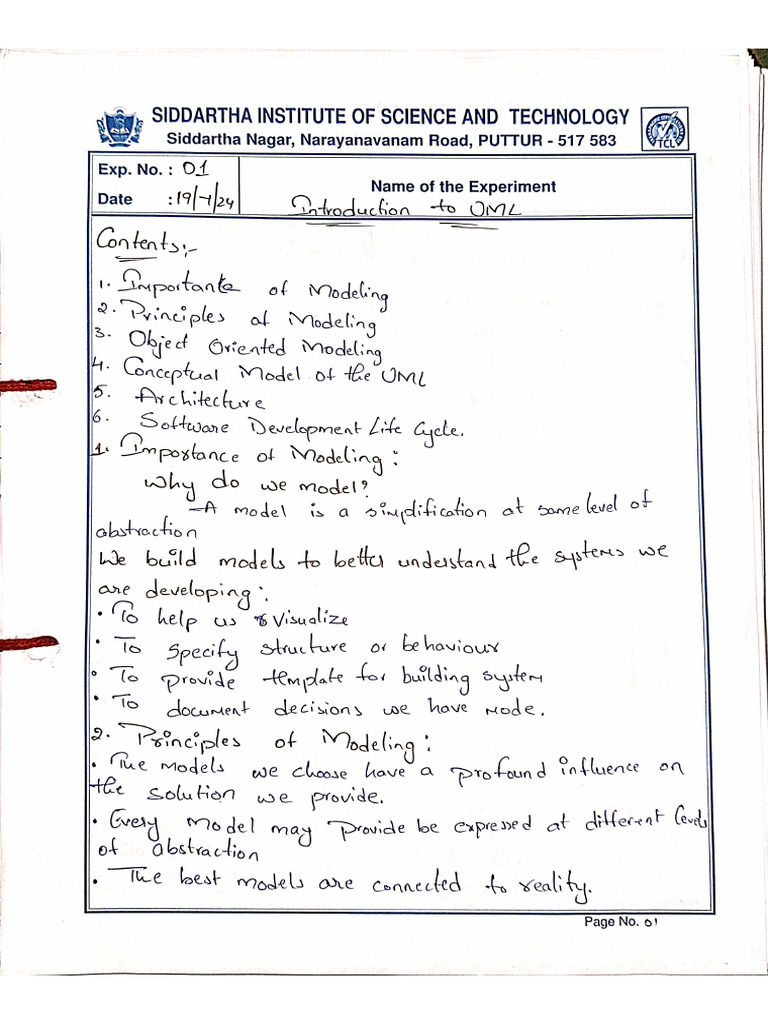 SIDDARTHA INSTITUTE OF SCIENCE AND TECHNOLOGY
Siddartha Nagar, Narayanavanam Road, PUTTUR - 517 583
TCL
Exp. No. : 01
Name of the Experiment
Date : 19/1/24
Introduction to UML
Contents:-
1. Importance of Modeling
2. Principles of Modeling
3. Object Oriented Modeling
4. Conceptual Model of the UML
5. Architecture
6. Software Development Life Cycle.
1. Importance of Modeling:
Why do we model?
- A model is a simplification at some level of
abstraction
We build models to better understand the systems we
are developing:
• To help us Visualize
• To specify structure or behaviour
• To provide template for building system
• To document decisions we have made.
2. Principles of Modeling:
• The models we choose have a profound influence on
the solution we provide.
• Every model may provide be expressed at different levels
of abstraction
• The best models are connected to reality.
Page No. 01